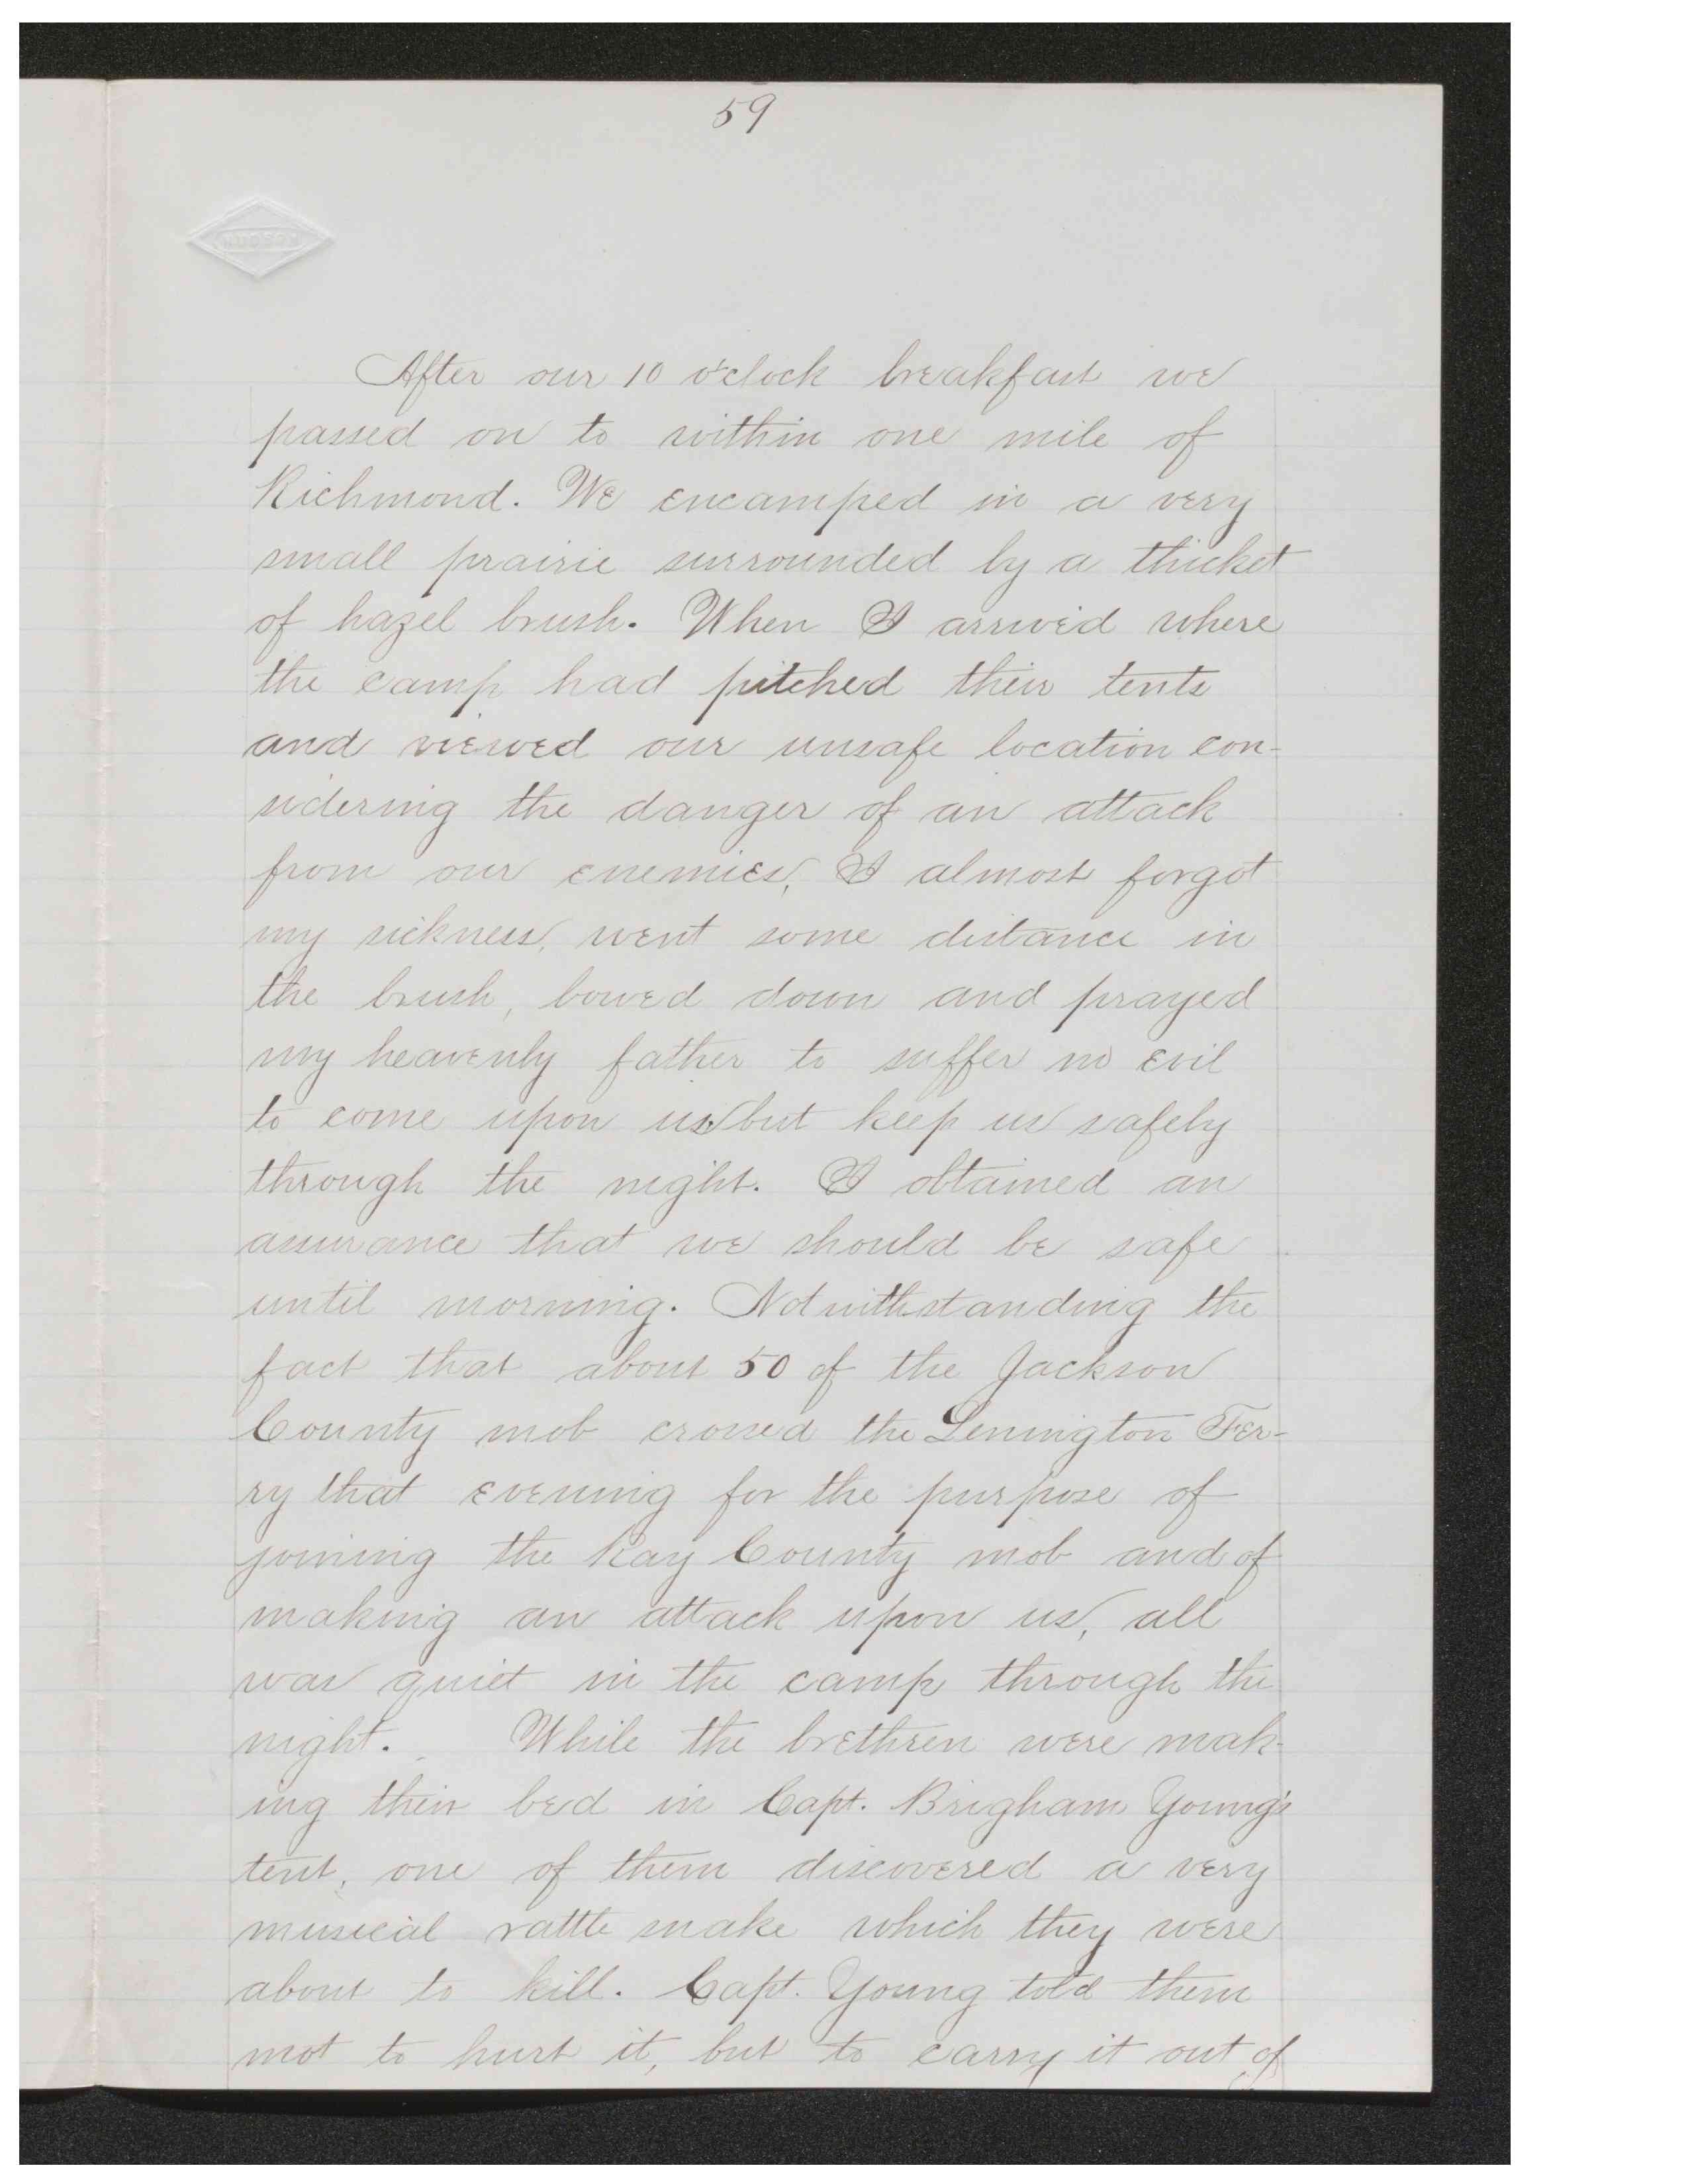 59
HUDSON
After our 10 o'clock breakfast we
passed on to within one mile of
Richmond. We encamped in a very
small prairie surrounded by a thicket
of hazel brush. When I arrived where
the camp had pitched their tents
and viewed our unsafe location con-
sidering the danger of an attack
from our enemies, I almost forgot
my sickness, went some distance in
the brush, bowed down and prayed
my heavenly father to suffer no evil
to come upon us but keep us safely
through the night. I obtained an
assurance that we should be safe
until morning. Notwithstanding the
fact that about 50 of the Jackson
County mob crossed the Lennington Fer-
ry that evening for the purpose of
joining the Ray County mob and of
making an attack upon us, all
was quiet in the camp through the
night. While the brethren were mak-
ing their bed in Capt. Brigham Young's
tent, one of them discovered a very
musical rattle snake which they were
about to kill. Capt. Young told them
not to hurt it, but to carry it out of